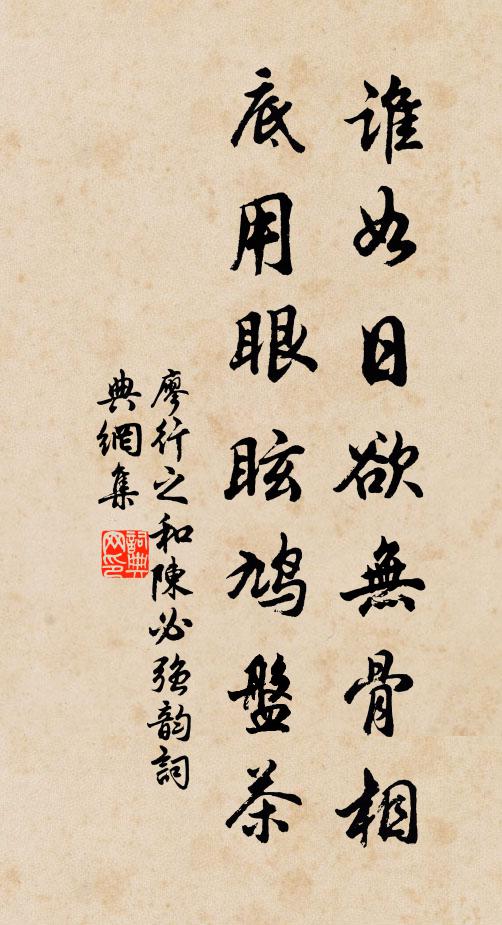 誰如日欲無骨相
底用眼眩鳩盤茶
廖行之和陳必強韵詞
典網集
詞典網印